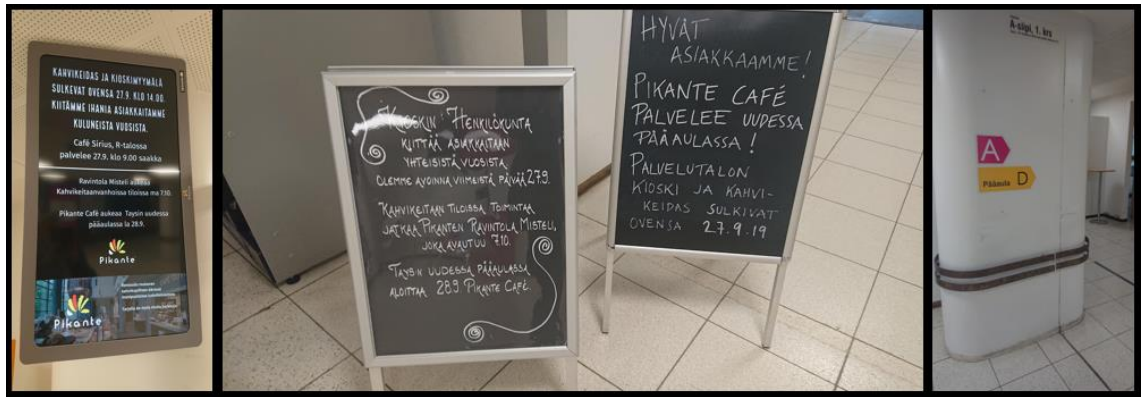 KAHVIKEIDAS JA KIOSKIMYYMÄLÄ
SULKEVAT OVENSA 27.9. KLO 14.00.
KIITÄMME IHANIA ASIAKKAITAMME
KULUNEISTA VUOSISTA.
Café Sirius, R-talossa
palvelee 27.9. klo 9.00 saakka
Ravintola Misteli aukeaa
Kahvikeitaanvanhoissa tiloissa ma 7.10.
Pikante Café aukeaa Taysin uudessa
pääaulassa la 28.9.
Pikante
Pikante
KIOSKIN HENKILÖKUNTA
KIITTÄÄ ASIAKKAITAAN
YHTEISISTÄ VUOSISTA.
OLEMME AVOINNA VIIMEISTÄ PÄIVÄÄ 27.9.
KAHVIKEITAAN TILOISSA TOIMINTAA
JATKAA PIKANTEN RAVINTOLA MISTELI,
JOKA AVAUTUU 7.10.
TAYSIN UUDESSA PÄÄAULASSA
ALOITTAA 28.9. PIKANTE CAFÉ.
HYVÄT
ASIAKKAAMME!
PIKANTE CAFÉ
PALVELEE UUDESSA
PÄÄAULASSA!
PALVELUTALON
KIOSKI JA KAHVI-
KEIPAS SULKIVAT
OVENSA 27.9.19
A-siipi, 1. krs
A
Pääaula D